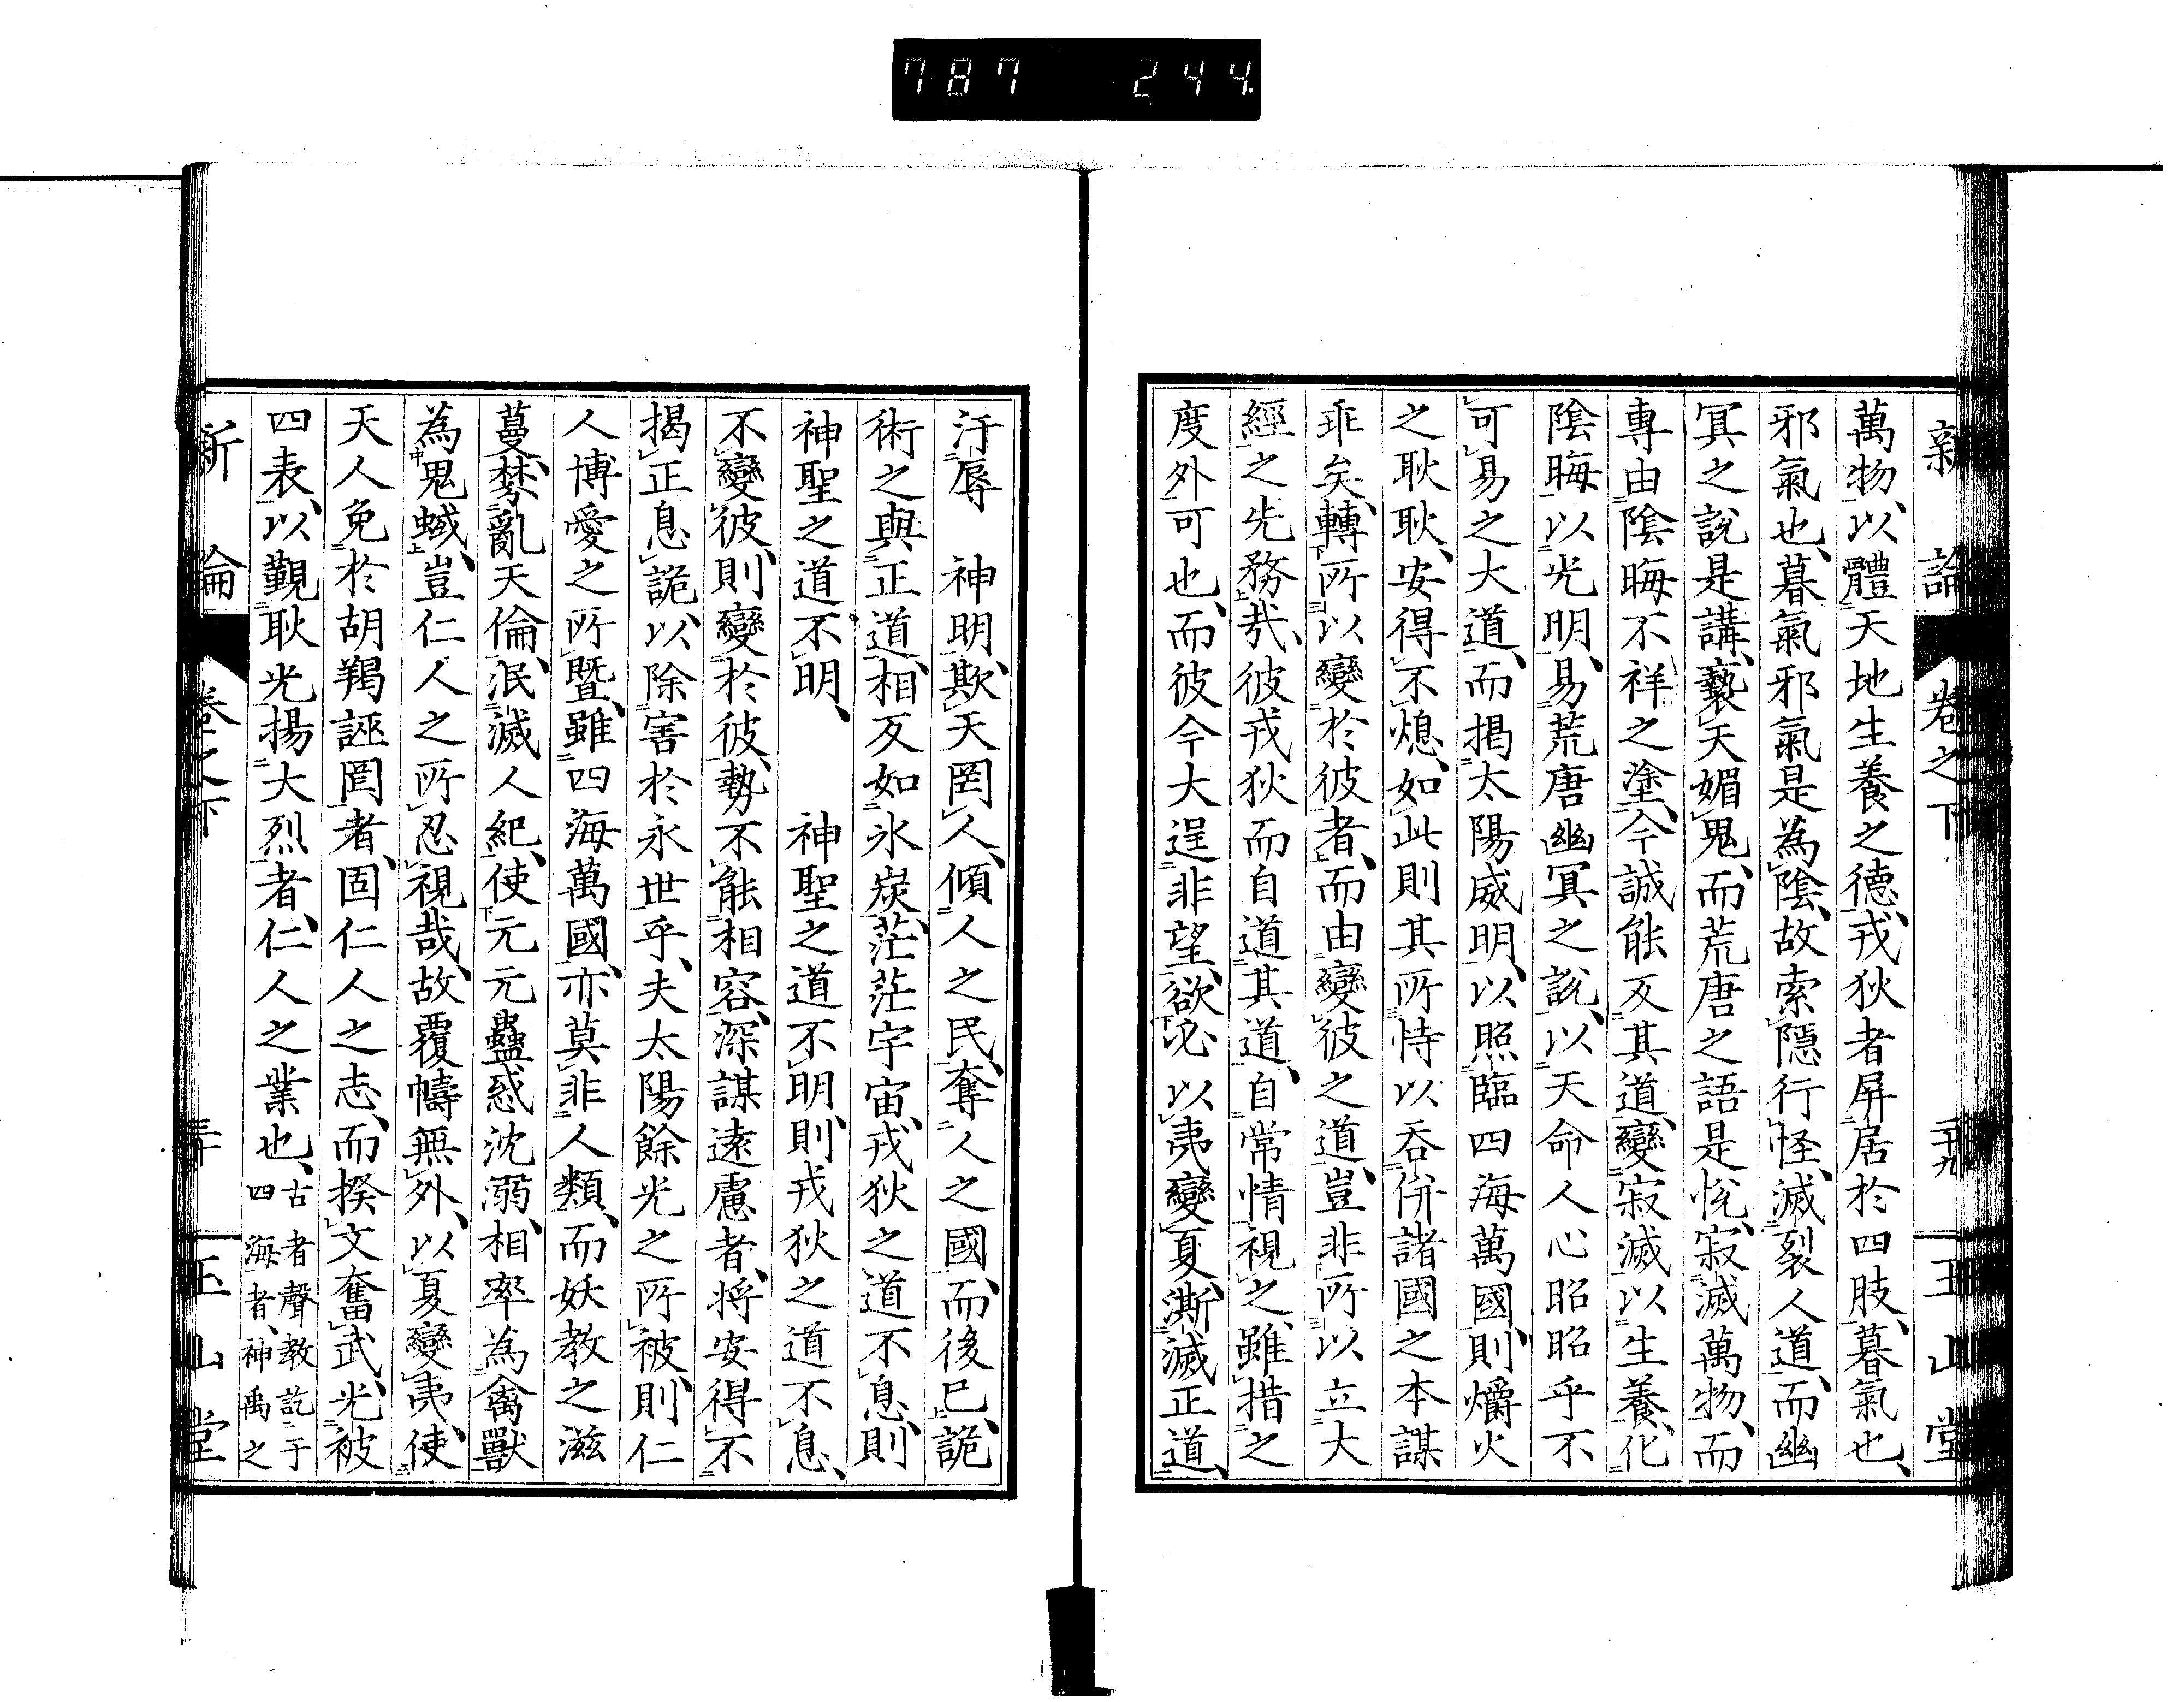 787 244.
新論 卷之下 二十九 玉山堂
萬物、以體天地生養之德、戎狄者屏居於四肢、暮氣也、
邪氣也、暮氣邪氣是為陰、故索隱行怪、滅裂人道、而幽
冥之說是講、褻天媚鬼、而荒唐之語是悅、寂滅萬物、而
專由陰晦不祥之塗、今誠能反其道、變寂滅以生養、化
陰晦以光明、易荒唐幽冥之說、以天命人心昭昭乎不
可易之大道、而揭太陽威明、以照臨四海萬國、則爝火
之耿耿、安得不熄、如此則其所恃以吞併諸國之本謀
乖矣、轉所以變於彼者、而由變彼之道、豈非所以立大
經之先務哉、彼戎狄而自道其道、自常情視之、雖措之
度外可也、而彼今大逞非望、欲必以夷變夏、澌滅正道、
汙辱 神明、欺天罔人、傾人之民、奪人之國、而後已、詭
術之與正道、相反如氷炭、茫茫宇宙、戎狄之道不息、則
神聖之道不明、 神聖之道不明、則戎狄之道不息、
不變彼、則變於彼、勢不能相容、深謀遠慮者、將安得不
揭正息詭、以除害於永世乎、夫太陽餘光之所被、則仁
人博愛之所曁、雖四海萬國、亦莫非人類、而妖教之滋
蔓、棼亂天倫、泯滅人紀、使元元蠱惑沈溺、相率為禽獸
為鬼蜮、豈仁人之所忍視哉、故覆幬無外、以夏變夷、使
天人免於胡羯誣罔者、固仁人之志、而揆文奮武、光被
四表、以覲耿光揚大烈者、仁人之業也、古者聲教訖于
四海者、神禹之
新論 卷之下 三十 玉山堂